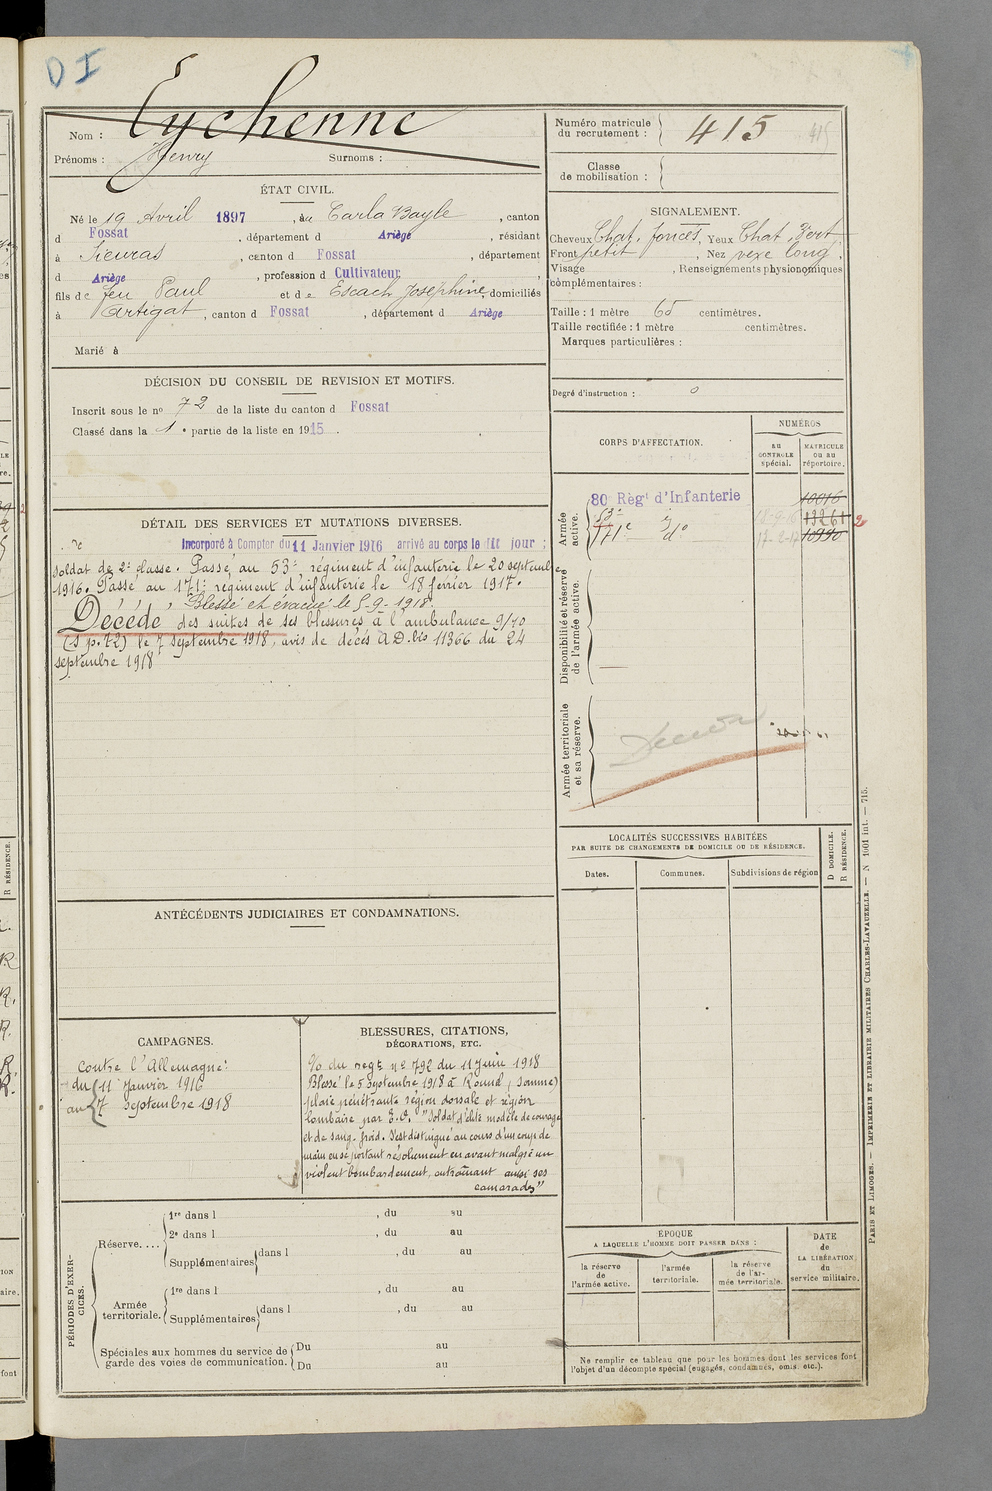 D I
Nom : Eychenne
Prénoms : Henry Surnoms :
Numéro matricule du recrutement : 415 415
Classe de mobilisation :
ÉTAT CIVIL.
Né le 19 Avril 1897, à Carla Bayle, canton
d Fossat, département d Ariège, résidant
à Sieuras, canton d Fossat, département
d Ariège, profession d Cultivateur,
fils de feu Paul et de Escach Josephine, domiciliés
à Artigat, canton d Fossat, département d Ariège
Marié à
SIGNALEMENT.
Cheveux Chat. foncés, Yeux Chat. Vert
Front petit, Nez vexe long,
Visage , Renseignements physionomiques
complémentaires :
Taille : 1 mètre 65 centimètres.
Taille rectifiée : 1 mètre centimètres.
Marques particulières :
Degré d'instruction : 0
DÉCISION DU CONSEIL DE REVISION ET MOTIFS.
Inscrit sous le nº 72 de la liste du canton d Fossat
Classé dans la 1e partie de la liste en 1915.
DÉTAIL DES SERVICES ET MUTATIONS DIVERSES.
Incorporé à Compter du 11 Janvier 1916 arrivé au corps le dit jour ;
soldat de 2e classe. Passé au 53e régiment d'infanterie le 20 septembre
1916. Passé au 171e régiment d'infanterie le 18 février 1917.
Blessé et évacué le 5-9-1918.
Décédé des suites de ses blessures à l'ambulance 9/10
(S.p.12) le 7 septembre 1918, avis de décès A.D.bis 11366 du 24
septembre 1918
CORPS D'AFFECTATION.
NUMÉROS
AU CONTROLE spécial.
MATRICULE ou au répertoire.
Armée active.
80 Régt d'Infanterie 10016
53e do 13261
171e do 10990
Disponibilité et réserve de l'armée active.
Armée territoriale et sa réserve.
LOCALITÉS SUCCESSIVES HABITÉES
PAR SUITE DE CHANGEMENTS DE DOMICILE OU DE RÉSIDENCE.
Dates.
Communes.
Subdivisions de région
D DOMICILE.
R RÉSIDENCE.
ANTÉCÉDENTS JUDICIAIRES ET CONDAMNATIONS.
CAMPAGNES.
Contre l'Allemagne :
du 11 Janvier 1916
au 7 septembre 1918
BLESSURES, CITATIONS,
DÉCORATIONS, ETC.
% du regt nº 792 du 11 Juin 1918
Blessé le 5 Septembre 1918 à (Somme)
plaie pénétrante région dorsale et région
lombaire par E.O. "Soldat d'élite modèle de courage
et de sang-froid. S'est distingué au cours d'un coup de
main en se portant résolument en avant malgré un
violent bombardement, entraînant aussi ses
camarades"
PÉRIODES D'EXERCICES.
Réserve....
1re dans l , du au
2e dans l , du au
Supplémentaires dans l , du au
Armée territoriale.
1re dans l , du au
Supplémentaires dans l , du au
Spéciales aux hommes du service de garde des voies de communication.
Du au
Du au
ÉPOQUE
A LAQUELLE L'HOMME DOIT PASSER DANS :
la réserve de l'armée active.
l'armée territoriale.
la réserve de l'armée territoriale.
DATE de LA LIBÉRATION du service militaire.
Ne remplir ce tableau que pour les hommes dont les services font
l'objet d'un décompte spécial (engagés, condamnés, omis, etc.).
PARIS ET LIMOGES. — IMPRIMERIE ET LIBRAIRIE MILITAIRES CHARLES-LAVAUZELLE. — N 1001 int. — 715.